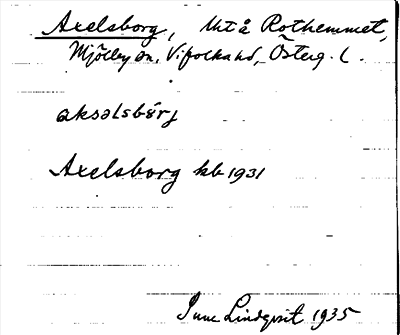 Axelsborg, lht å Rothemmet,
Mjölby sn, Vifolka hd, Österg. l.
aksəlsbórj
Axelsborg kb 1931
Sune Lindqvist 1935